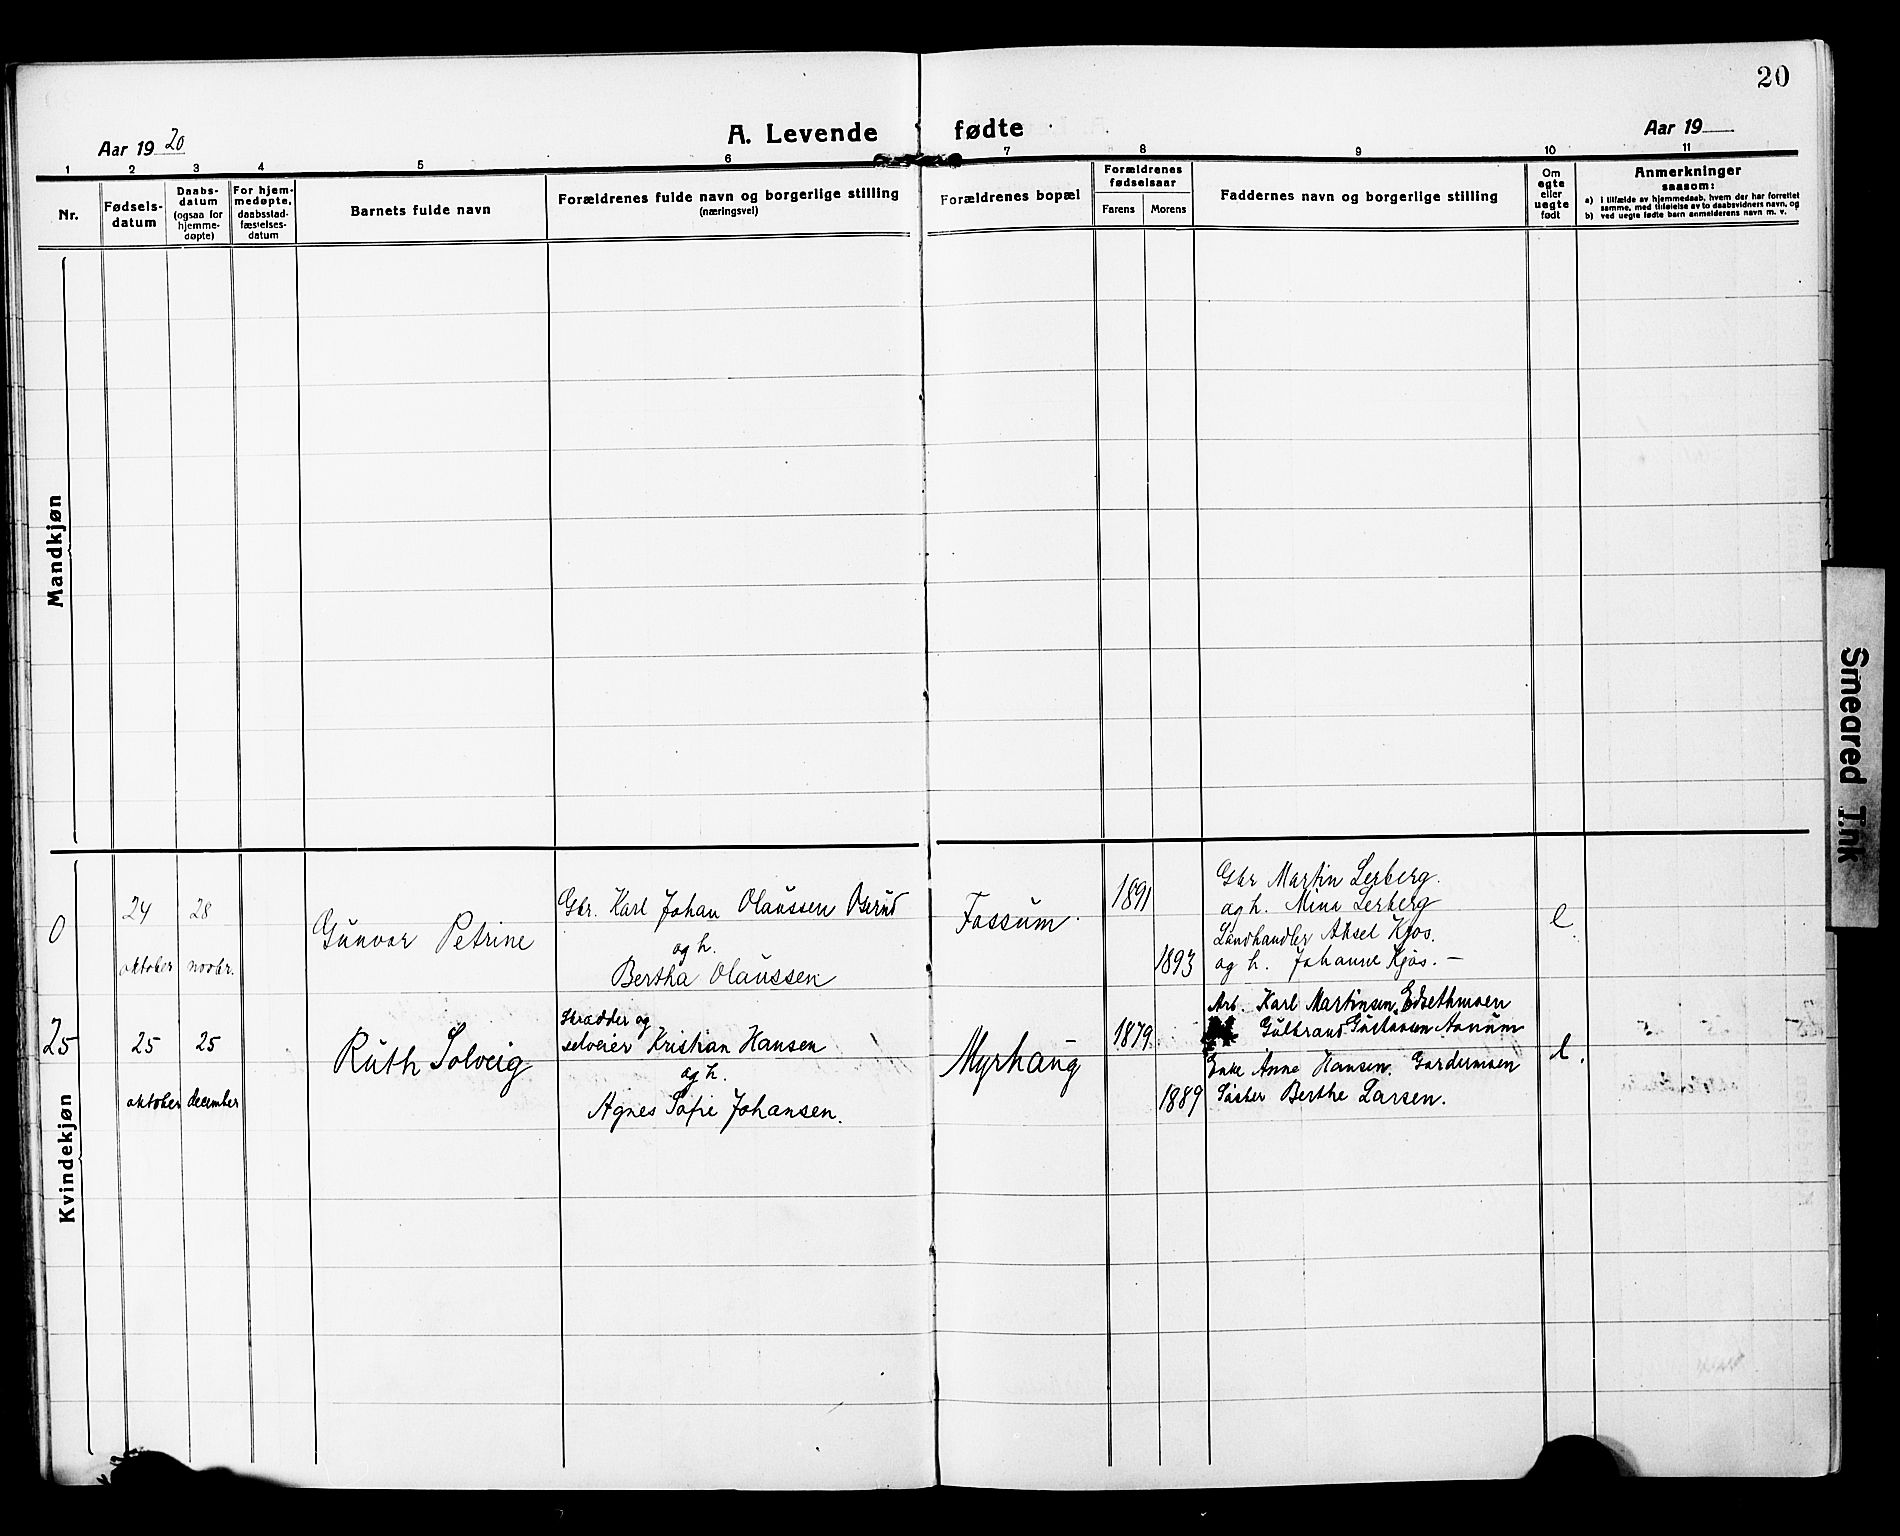 20
Aar 19 20
A. Levende fødte
Aar 19
1 2 3 4 5 6 7 8 9 10 11
Nr.
Fødsels-
datum
Daabs-
datum
(ogsaa for
hjemme-
døpte)
For hjem-
medøpte,
daabsstad-
fæstelses-
datum
Barnets fulde navn
Forældrenes fulde navn og borgerlige stilling
(næringsvei)
Forældrenes bopæl
Forældrenes
fødselsaar
Farens
Morens
Faddernes navn og borgerlige stilling
Om
egte
eller
uegte
født
Anmerkninger
saasom:
a) i tilfælde av hjemmedaab, hvem der har forrettet
samme, med tilføielse av to daabsvidners navn, og
b) ved uegte fødte barn anmelderens navn m. v.
Mandkjøn
Kvindekjøn
0
24
oktober
28
novbr.
Gunvor Petrine
Gbr. Karl Johan Olaussen Oserud
og h.
Bertha Olaussen
Fossum.
1891
1893
Gbr Martin Lerberg.
og h. Mina Lerberg
Landhandler Aksel Kjos.
og h. Johanne Kjos. —
e.
25
25
oktober
25
december
Ruth Solveig
Skrædder og
selveier Kristian Hansen
og h.
Agnes Sofie Johansen.
Myrhaug
1879
1889
Arb. Karl Martinsen,
Gulbrand Gustavsen
Enke Anne Hansen. Gardermoen
Søster Berthe Larsen.
e.
Smeared Ink